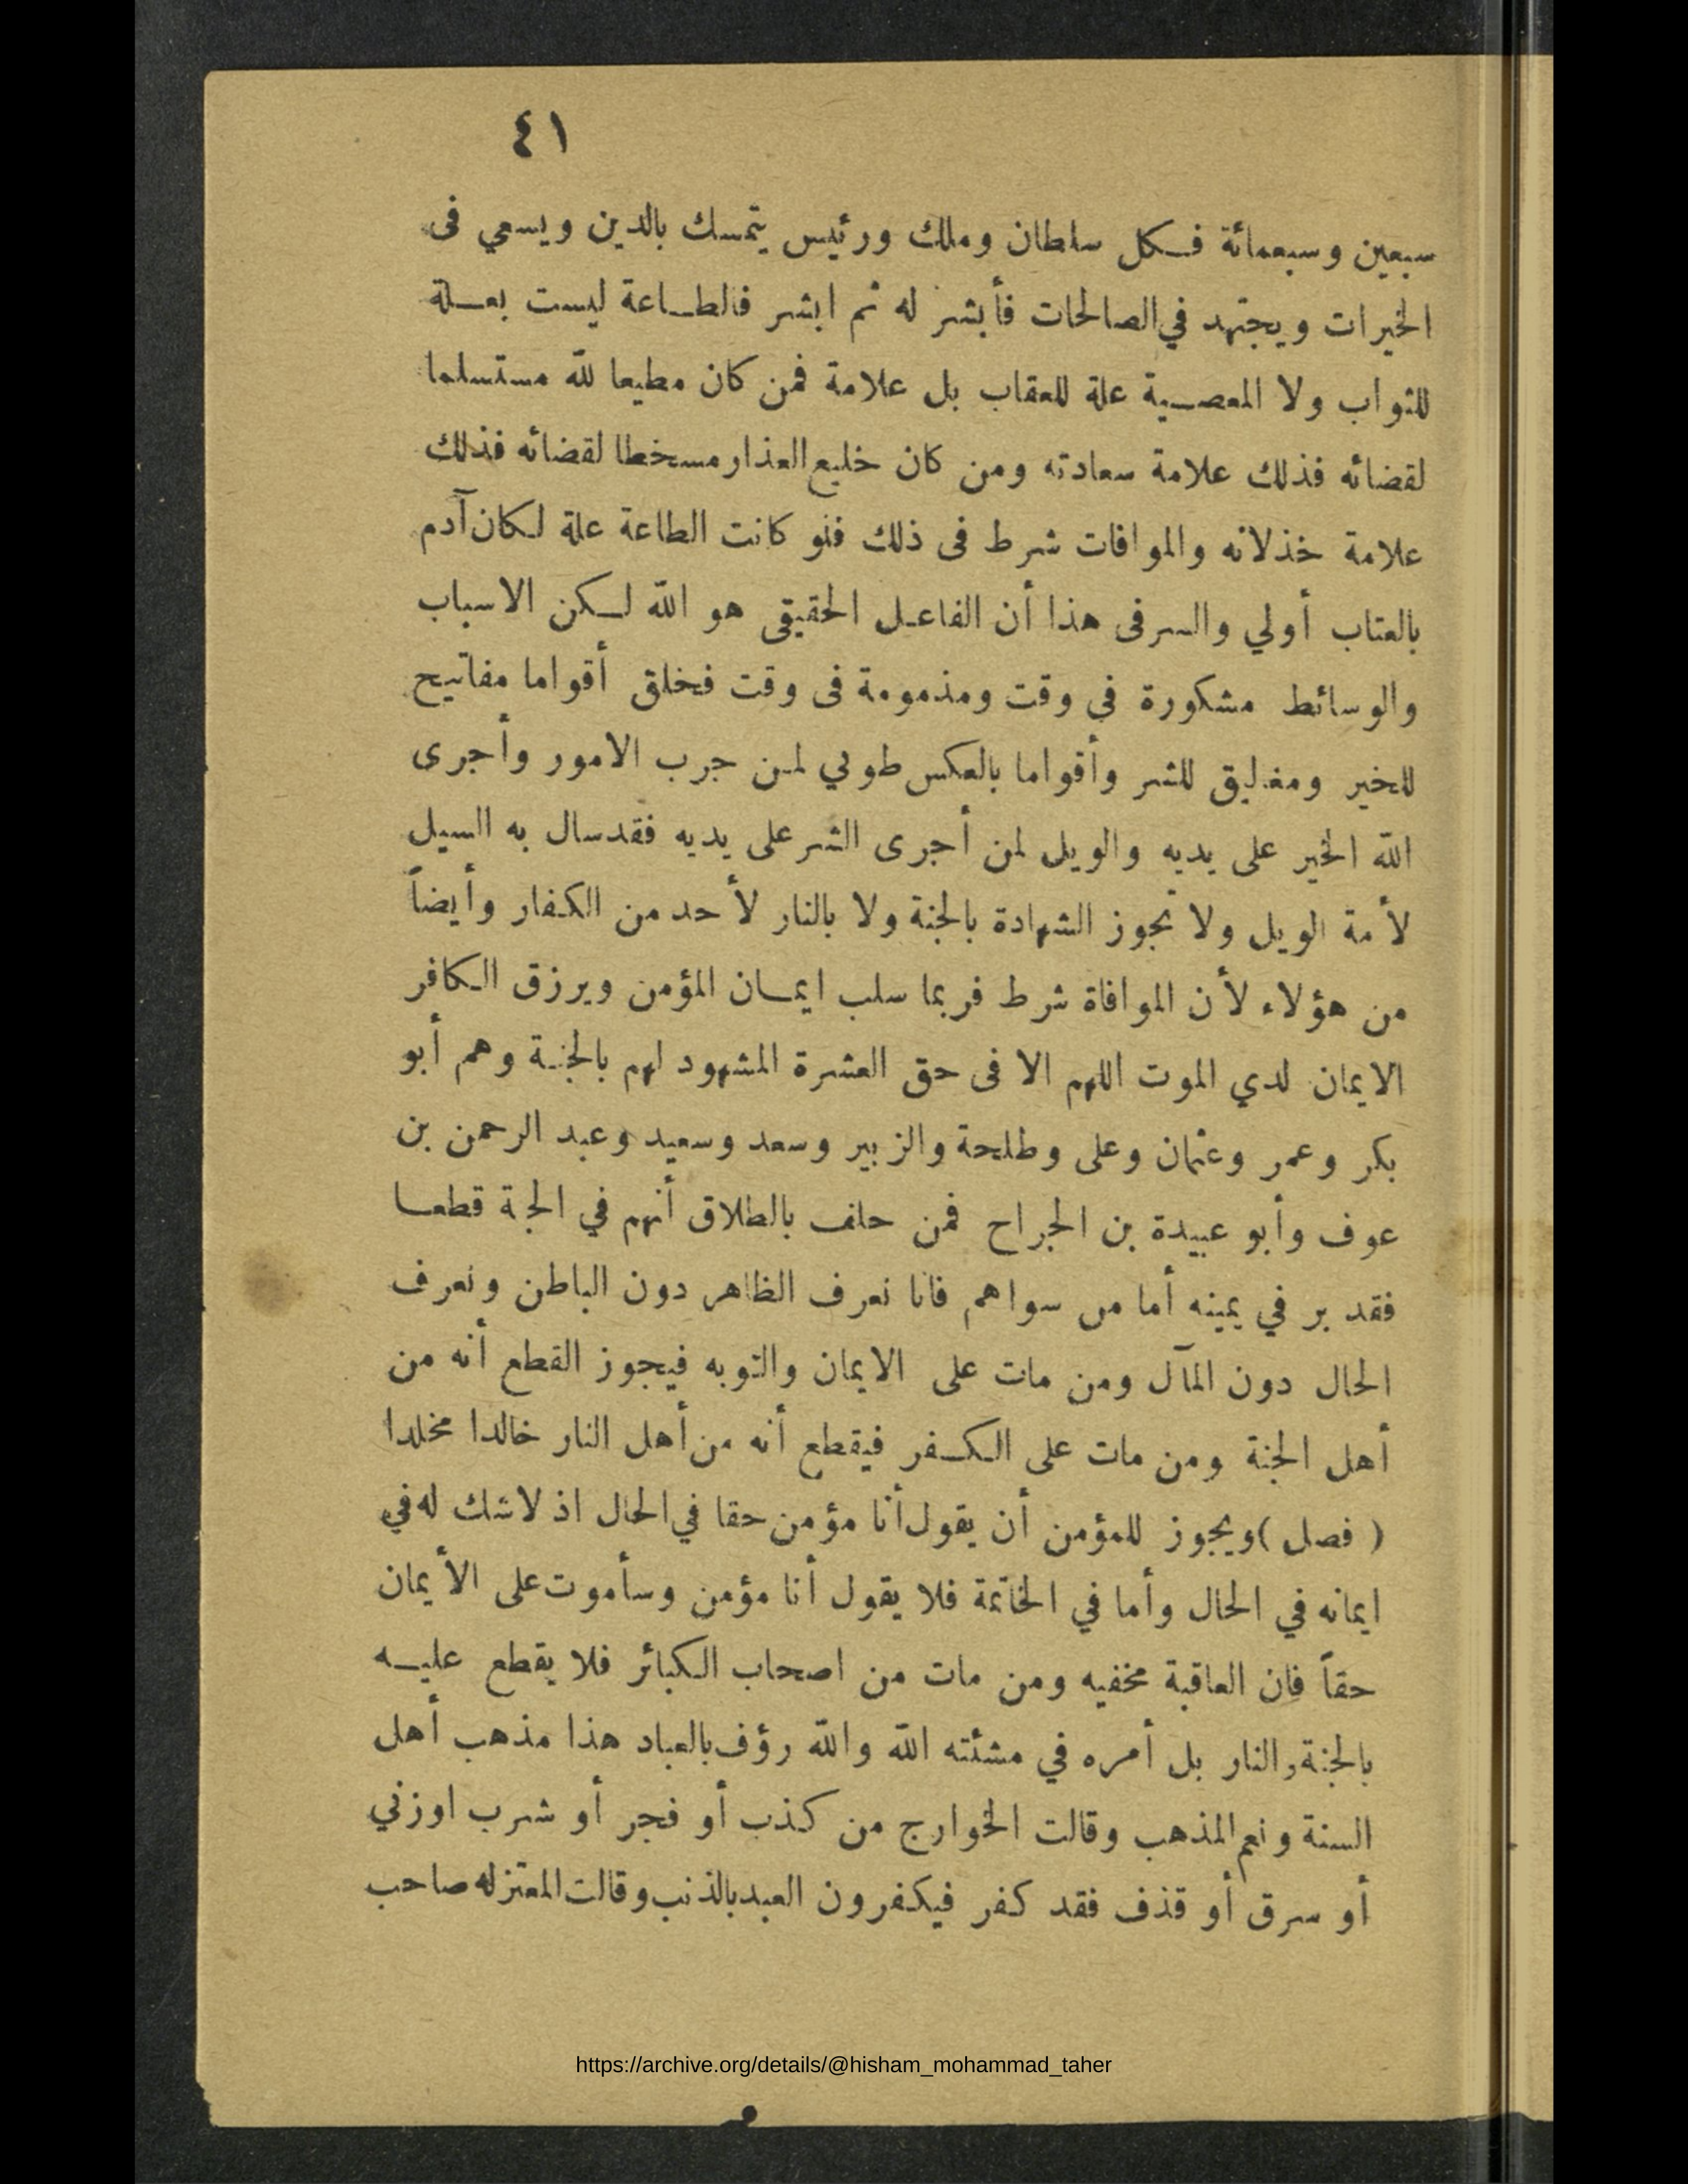 ٤١
سبعين وسبعمائة فكل سلطان وملك ورئيس يتمسك بالدين ويسعي فى
الخيرات ويجتهد في الصالحات فأبشر له ثم ابشر فالطاعة ليست بعلة
للثواب ولا المعصية علة للعقاب بل علامة فمن كان مطيعا لله مستسلما
لقضائه فذلك علامة سعادته ومن كان خليع العذار مسخطا لقضائه فذلك
علامة خذلانه والموافات شرط فى ذلك فلو كانت الطاعة علة لكان آدم
بالعتاب أولي والسر فى هذا أن الفاعل الحقيقى هو الله لكن الاسباب
والوسائط مشكورة في وقت ومذمومة فى وقت فخلق أقواما مفاتيح
للخير ومغليق للشر وأقواما بالعكس طوبي لمن جرب الامور وأجرى
الله الخير على يديه والويل لمن أجرى الشر على يديه فقد سال به السيل
لأمة الويل ولا تجوز الشهادة بالجنة ولا بالنار لأحد من الكفار وأيضاً
من هؤلاء لأن الموافاة شرط فربما سلب ايمان المؤمن ويرزق الكافر
الايمان لدي الموت اللهم الا فى حق العشرة المشهود لهم بالجنة وهم أبو
بكر وعمر وعثمان وعلى وطلحة والزبير وسعد وسعيد وعبد الرحمن بن
عوف وأبو عبيدة بن الجراح فمن حلف بالطلاق أنهم في الجة قطعا
فقد بر في يمينه أما من سواهم فانا نعرف الظاهر دون الباطن ونعرف
الحال دون المآل ومن مات على الايمان والتوبه فيجوز القطع أنه من
أهل الجنة ومن مات على الكفر فيقطع أنه من أهل النار خالدا مخلدا
( فصل ) ويجوز للمؤمن أن يقول أنا مؤمن حقا في الحال اذ لاشك له في
ايمانه في الحال وأما في الخاتمة فلا يقول أنا مؤمن وسأموت على الأيمان
حقاً فان العاقبة مخفيه ومن مات من اصحاب الكبائر فلا يقطع عليه
بالجنة والنار بل أمره في مشئته الله والله رؤف بالعباد هذا مذهب أهل
السنة ونعم المذهب وقالت الخوارج من كذب أو فجر أو شرب اوزني
أو سرق أو قذف فقد كفر فيكفرون العبد بالذنب وقالت المعتزله صاحب
https://archive.org/details/@hisham_mohammad_taher